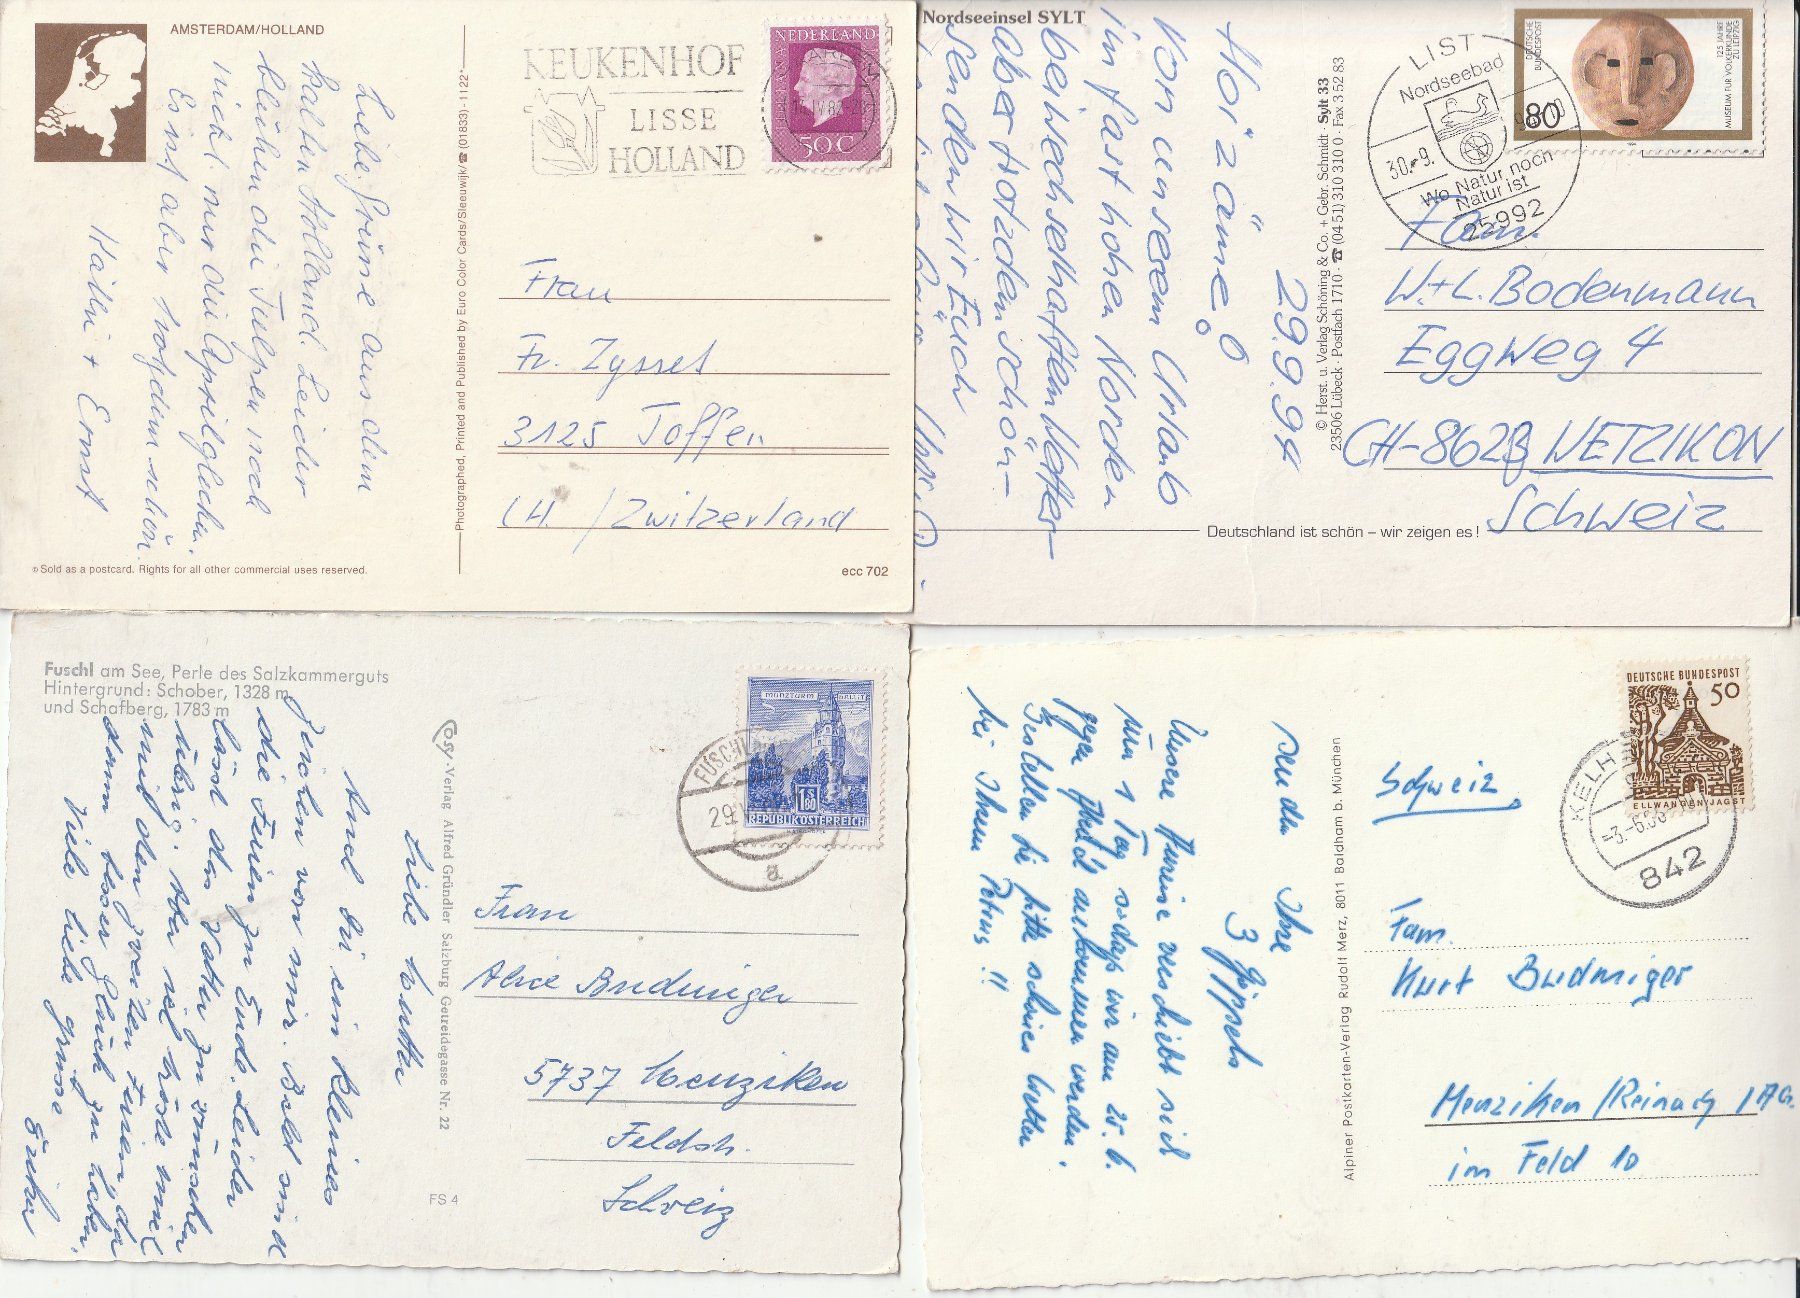 AMSTERDAM/HOLLAND
Liebe Grüsse aus dem
kalten Holland. Leider
blühen die Tulpen noch
nicht, nur die Aprilglocken.
Es ist aber trotzdem schön.
Käthi + Ernst
Photographed, Printed and Published by Euro Color Cards/Sleeuwijk/☎ (01833)-1122*
KEUKENHOF
LISSE
HOLLAND
NEDERLAND
50C
Frau
Fr. Zysset
3125 Toffen
CH. / Zwitzerland
Sold as a postcard. Rights for all other commercial uses reserved.
ecc 702
Nordseeinsel SYLT
29.9.94
Hoi zäme!
Von unserem Urlaub
im fast hohen Norden
bei wechselhaftem Wetter
aber trotzdem schön
senden wir Euch
© Herst. u. Verlag Schöning & Co. + Gebr. Schmidt · Sylt 33
23506 Lübeck · Postfach 1710 · ☎ (04 51) 310 310 0 · Fax 3 52 83
LIST
Nordseebad
30.-9.
Wo Natur noch
Natur ist
25992
DEUTSCHE
BUNDESPOST
80
125 JAHRE
MUSEUM FÜR VÖLKERKUNDE
ZU LEIPZIG
Fam.
W.+L. Bodenmann
Eggweg 4
CH-8623 WETZIKON
Schweiz
Deutschland ist schön – wir zeigen es!
Fuschl am See, Perle des Salzkammerguts
Hintergrund: Schober, 1328 m
und Schafberg, 1783 m
Liebe
Und Dir ein kleines
Zeichen von mir. Bald sind
die Ferien zu Ende. Leider
lässt das Wetter zu wünschen
übrig. Aber ich tröste mich
mit den zweiten Ferien, da
dann besser Glück zu haben.
Viele liebe Grüsse
Erika
-Verlag Alfred Gründler Salzburg Getreidegasse Nr. 22
FS 4
MÜNZTURM HALL i.T.
1.80
REPUBLIK ÖSTERREICH
FUSCHL
29.
a
Frau
Alice Budmiger
5737 Menziken
Feldstr.
Schweiz
senden Ihre
3 Göppels
Unsere Anreise verschiebt sich
um 1 Tag sodass wir am 25. 6.
gegen Abend ankommen werden.
Bestellen Sie bitte schönes Wetter
bei Ihrem Petrus!!
Alpiner Postkarten-Verlag Rudolf Merz, 8011 Baldham b. München
DEUTSCHE BUNDESPOST
50
ELLWANGEN/JAGST
KELH
-3.-6.
842
Schweiz
Fam.
Kurt Budmiger
Menziken/Reinach/AG.
im Feld 10